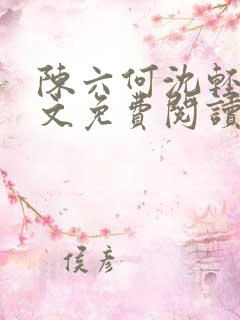 陳六何沈輕
文免費閱讀
侯彥